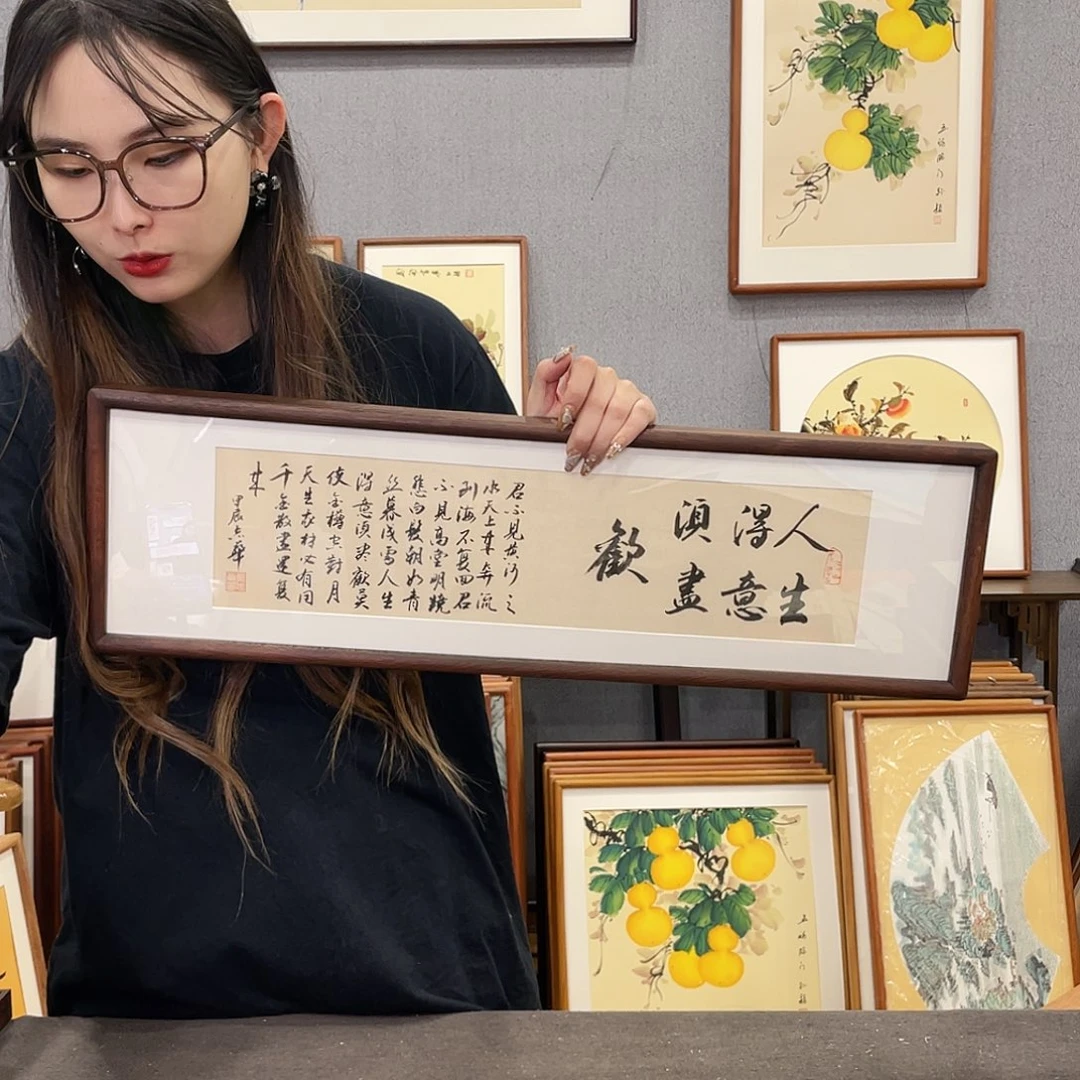 人生
得意
須盡
歡
君不見黃河之
水天上來奔流
到海不復回君
不見高堂明鏡
悲白髮朝如青
絲暮成雪人生
得意須盡歡莫
使金樽空對月
天生我材必有用
千金散盡還復
來
甲辰志華
五福臨门
五福臨门